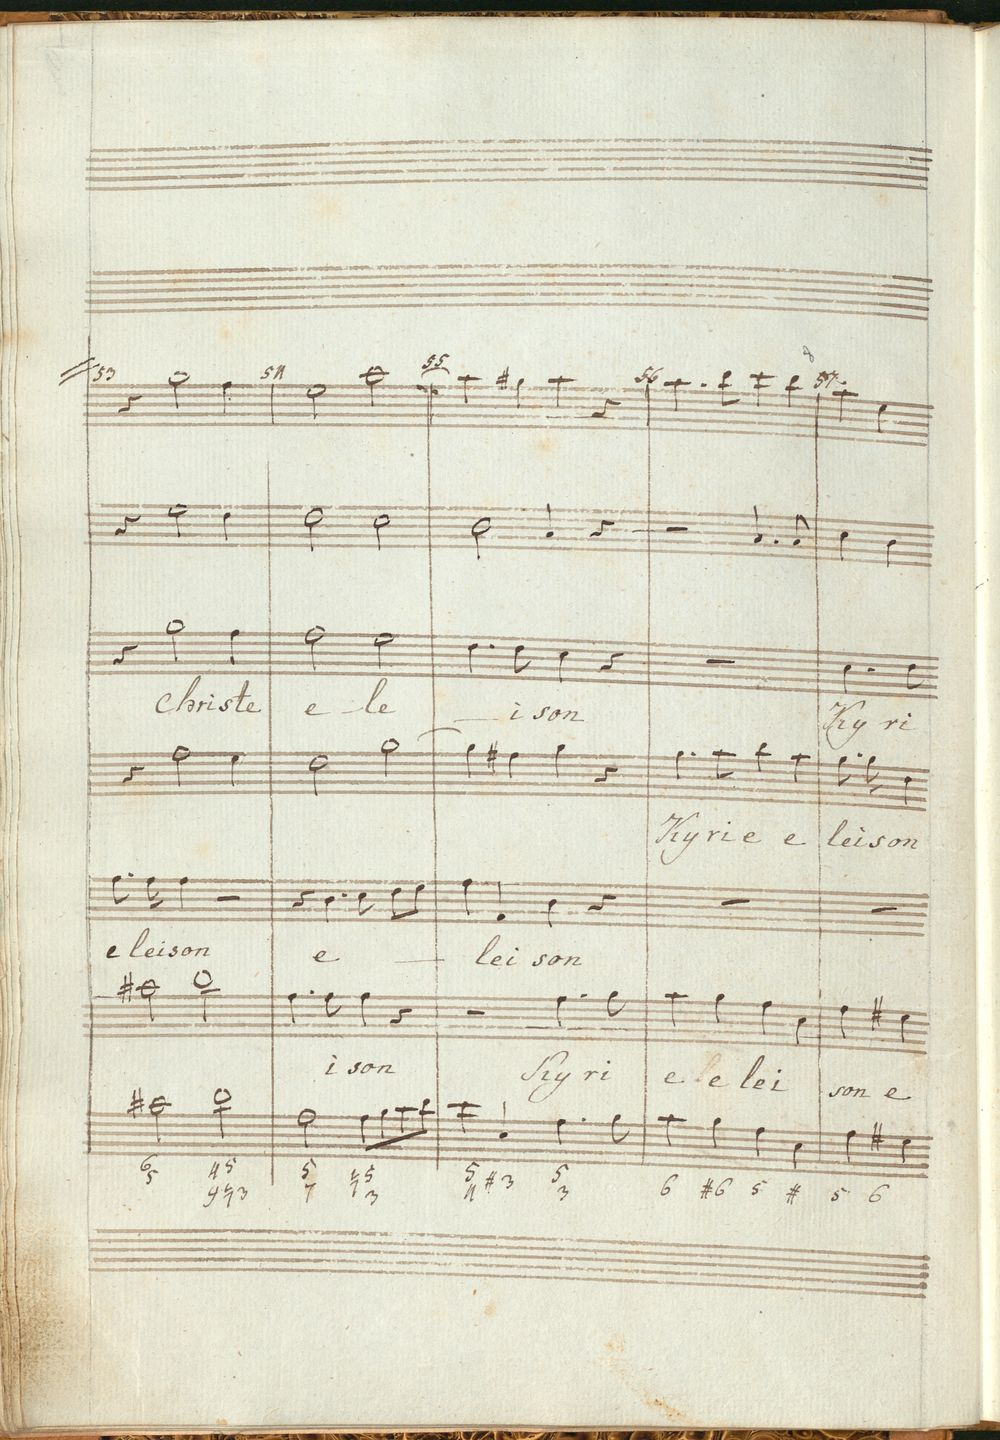 53 54 55 56 57
8
Christe e - le - ison Kyri
Kyrie e leison
e leison e - lei son
i son Kyri e e lei son e
6 4 5 5 ♮ 5 5 # 3 5 6 #6 5 # 5 6
5 9 ♮7 3 7 7 3 4 3